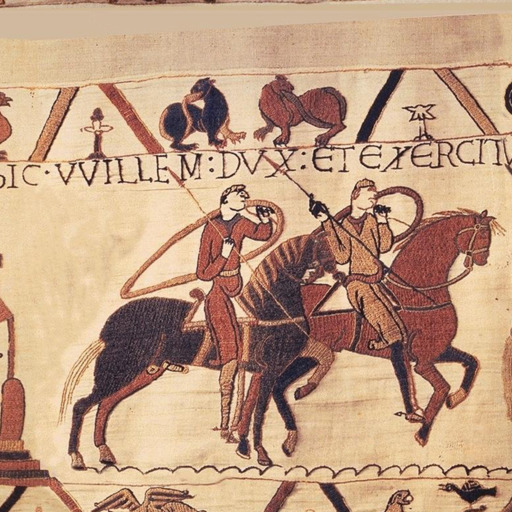 HIC · VVILLEM : DVX : ET EXERCITV